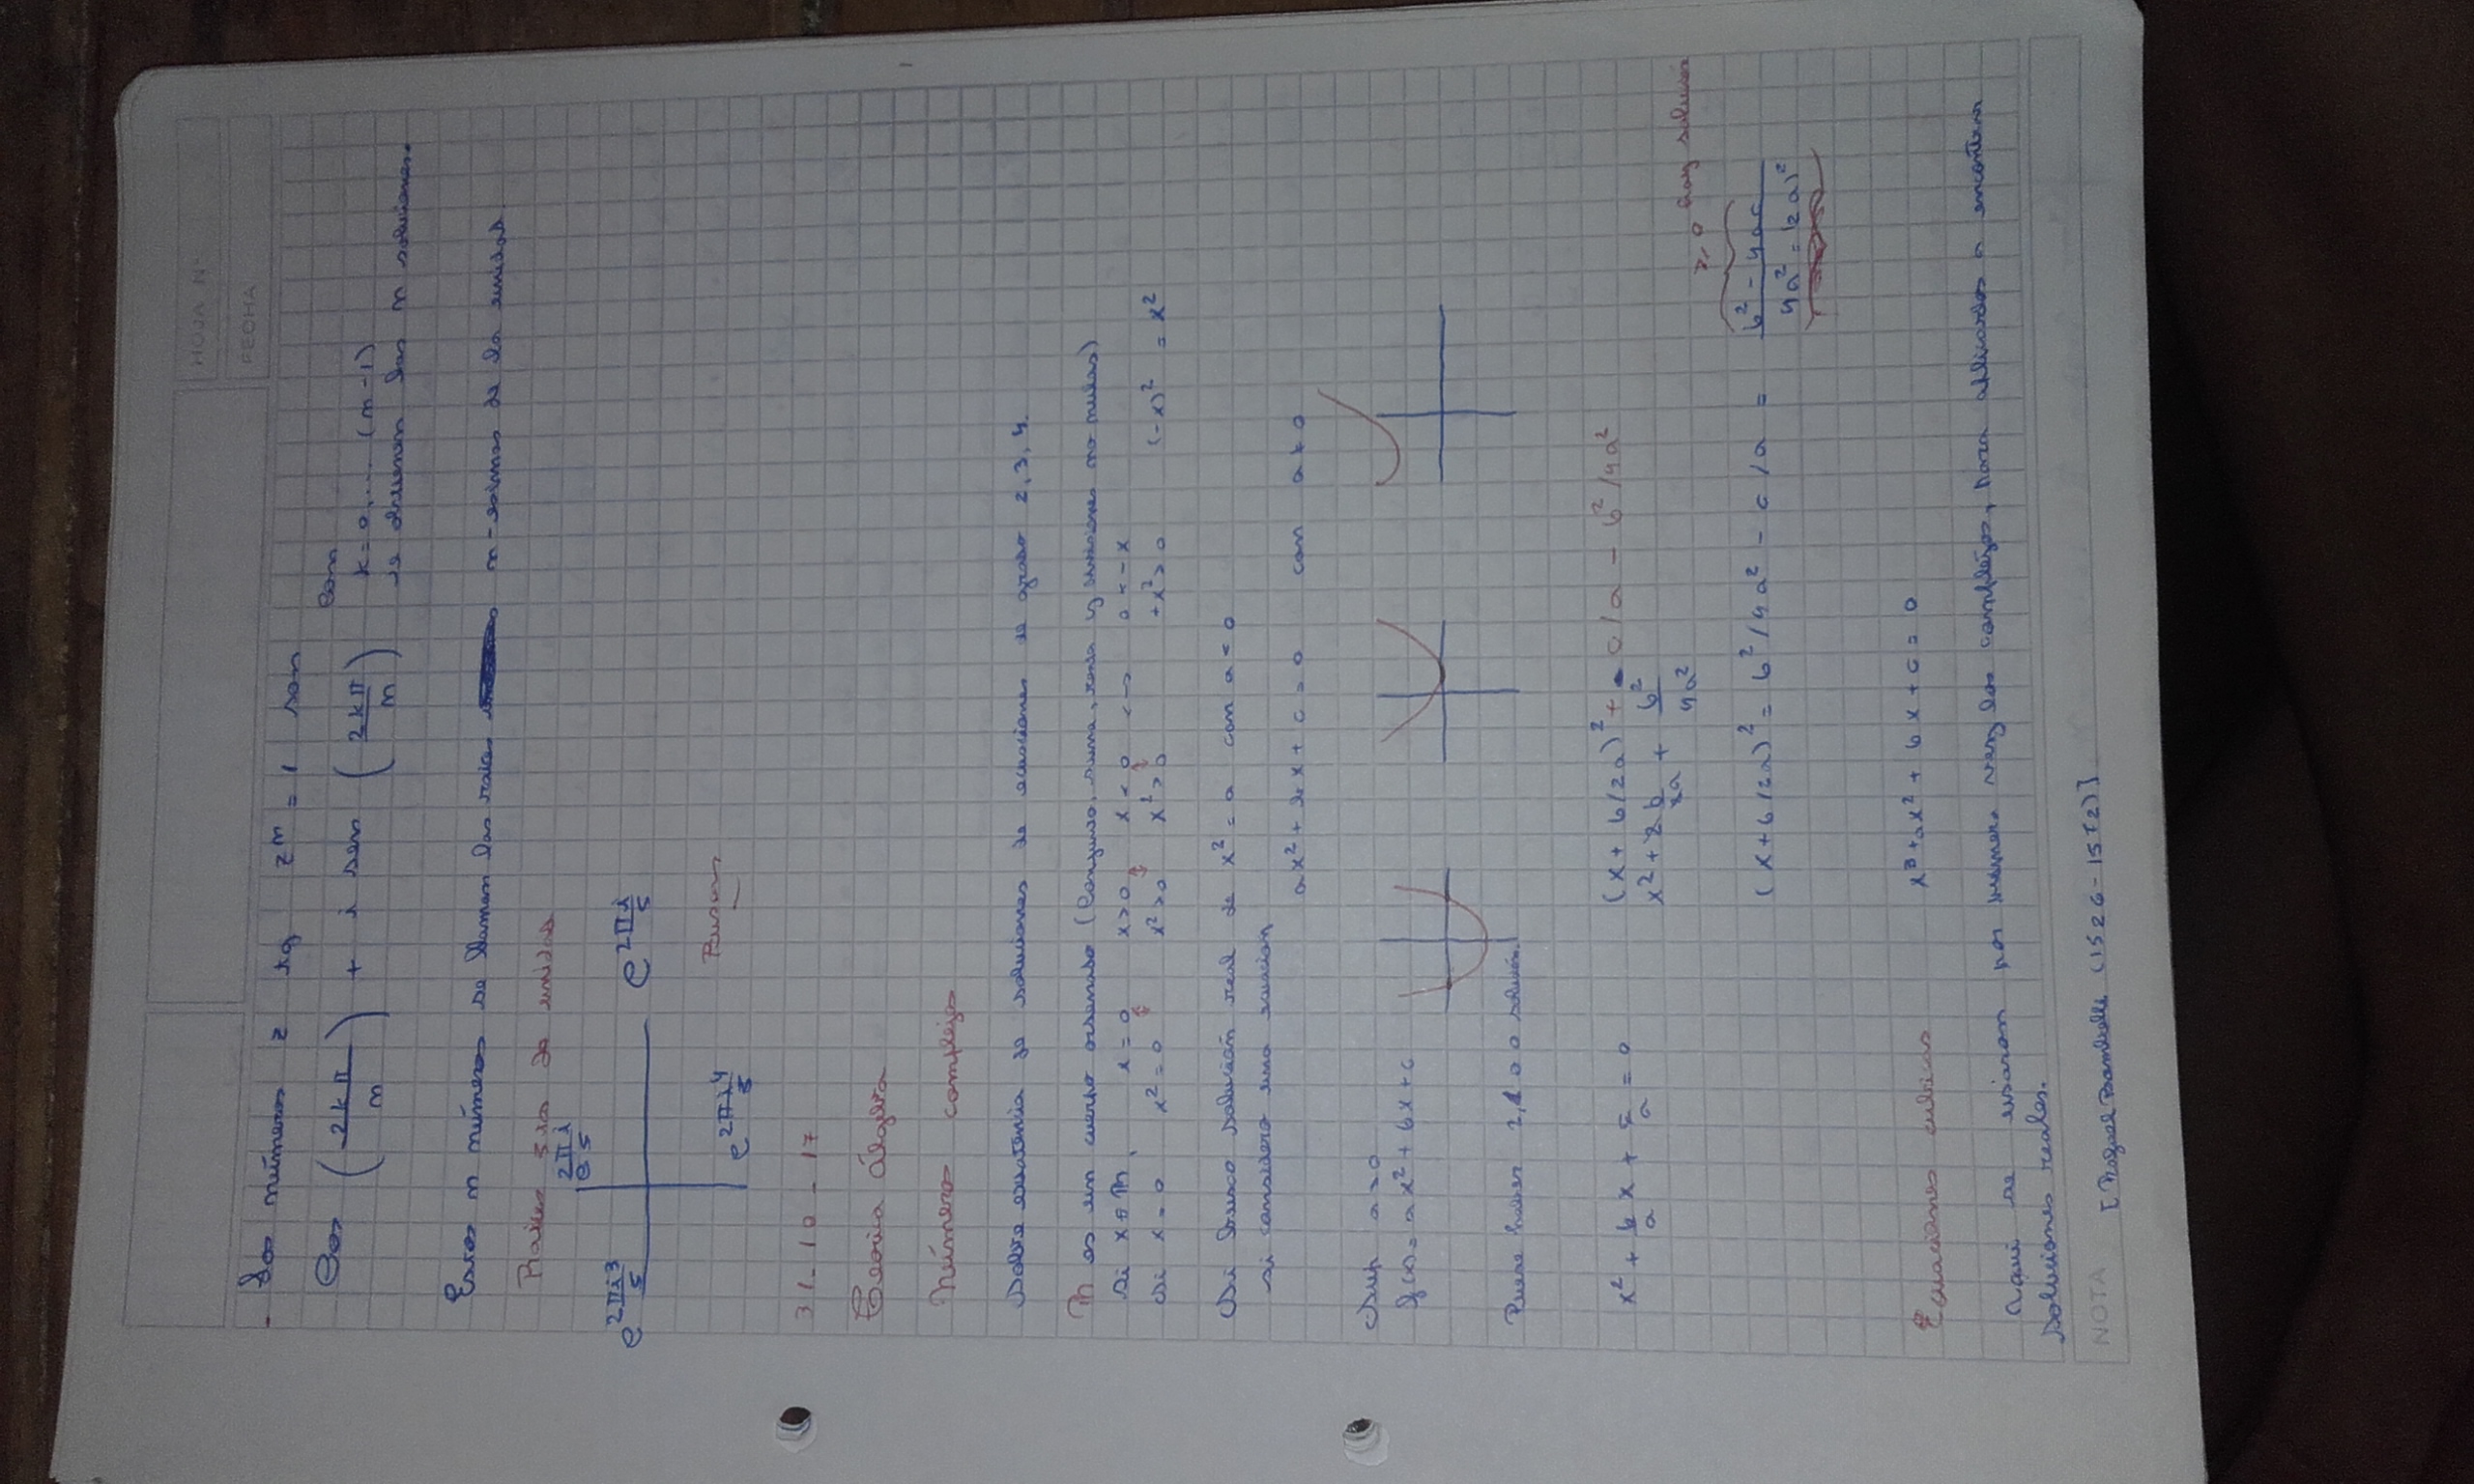 HOJA Nº
FECHA
- Los números z tq zⁿ = 1 son
Cos (2kπ/n) + i sen (2kπ/n) con
k = 0, ... (n-1)
se obtienen las n soluciones.
Estos n números se llaman las raices n-esimas de la unidad.
Raices 5tas de unidad
e^(2πi/5)
e^(2πi3/5) e^(2πi/5)
e^(2πi4/5)
31-10-17
Teoria Álgebra
Números complejos
Sobre existencia de soluciones de ecuaciones de grado 2, 3, 4.
R es un cuerpo ordenado (Conjunto, suma, resta y divisiones no nulas)
Si x ∈ R, x = 0 x > 0 x < 0 <-> 0 < -x
Si x = 0 x² = 0 x² > 0 x² > 0 +x² > 0 (-x)² = x²
Si busco solución real de x² = a con a < 0
si considero una ecuación
ax² + bx + c = 0 con a ≠ 0
Sup a > 0
f(x) = ax² + bx + c
Puede haber 2, 1 o 0 solución.
x² + b/a x + c/a = 0 (x + b/2a)² + c/a - b²/4a²
x² + 2 b/2a + b²/4a²
≥ 0 hay solución
(x + b/2a)² = b²/4a² - c/a = b² - 4ac / 4a² = (2a)²
Ecuaciones cubicas x³ + ax² + bx + c = 0
Aqui se usaron por primera vez los complejos, para aplicarlos a encontrar
soluciones reales.
NOTA [Rafael Bombelli (1526-1572)]